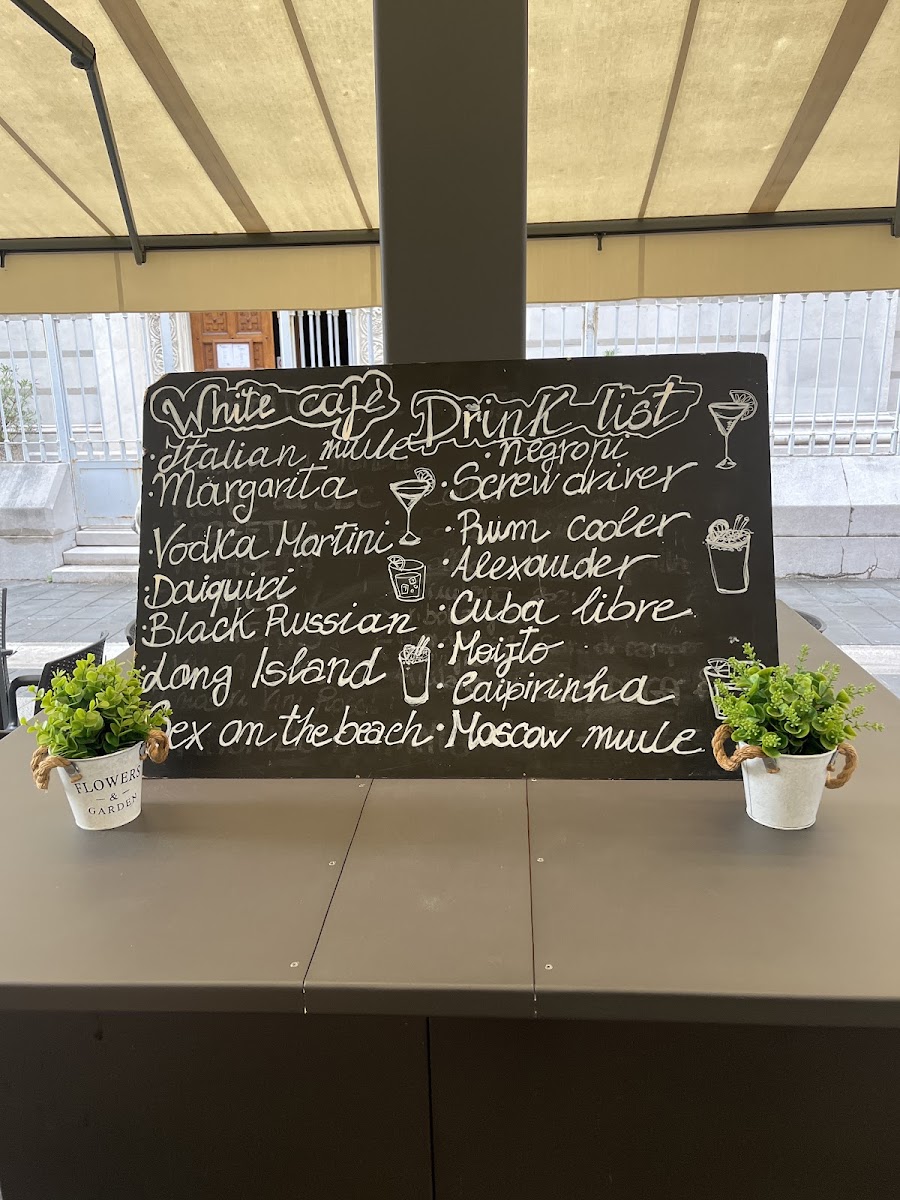 White café
Drink list
· Italian muule
· Margarita
· Vodka Martini
· Daiquiri
· Black Russian
· Long Island
Sex on the beach
· negroni
· Screwdriver
· Rum cooler
· Alexander
· Cuba libre
· Moijto
· Caipirinha
· Moscow muule
FLOWERS
- & -
GARDEN